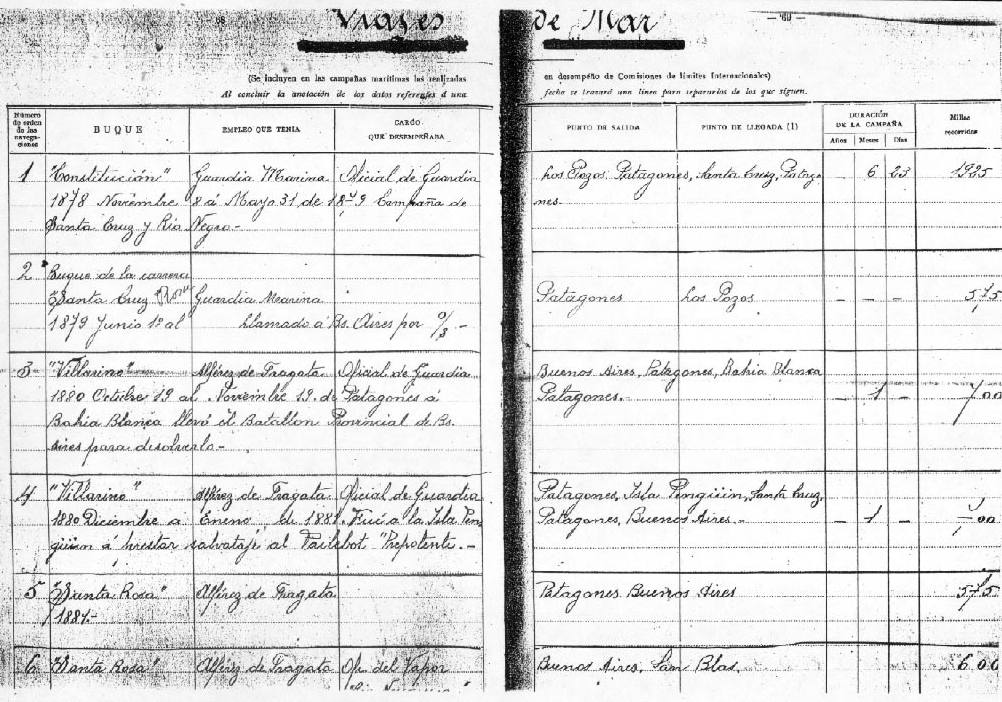 68
Viages de Mar
— 69 —
(Se incluyen en las campañas marítimas las realizadas en desempeño de Comisiones de límites Internacionales)
Al concluir la anotación de los datos referentes á una fecha se trazará una línea para separarlos de los que siguen.
Número de orden de las navegaciones
BUQUE
EMPLEO QUE TENIA
CARGO QUE DESEMPEÑABA
PUNTO DE SALIDA
PUNTO DE LLEGADA (1)
DURACIÓN DE LA CAMPAÑA
Años Meses Dias
Millas recorridas
1 "Constitución" Guardia Marina Oficial de Guardia Los Pozos, Patagones, Santa Cruz, Patago- — 6 23 1925
1878 Noviembre 8 á Mayo 31 de 1879 Campaña de nes.
Santa Cruz y Rio Negro-
2 Buque de la carrera
"Santa Cruz Guardia Marina Patagones Los Pozos — — — 575
1879 Junio 1º al Llamado á Bs. Aires por
3 "Villarino" Alférez de Fragata Oficial de Guardia Buenos Aires, Patagones, Bahia Blanca
1880 Octubre 19 a Noviembre 19. de Patagones á Patagones.- — 1 — 700
Bahia Blanca llevó el Batallon Provincial de Bs.
Aires para disolverlo-
4 "Villarino" Alférez de Fragata Oficial de Guardia Patagones, Isla Pengüin, Santa Cruz,
1880 Diciembre a Enero, de 1881. Fué a la Isla Pen- Patagones, Buenos Aires.- — 1 — 00
güin á prestar salvataje al Pailebot "Prepotente.-
5 "Santa Rosa" Alférez de Fragata Patagones Buenos Aires 575
1881.-
6 "Santa Rosa" Alférez de Fragata Of. del Vapor Buenos Aires, San Blas, 600